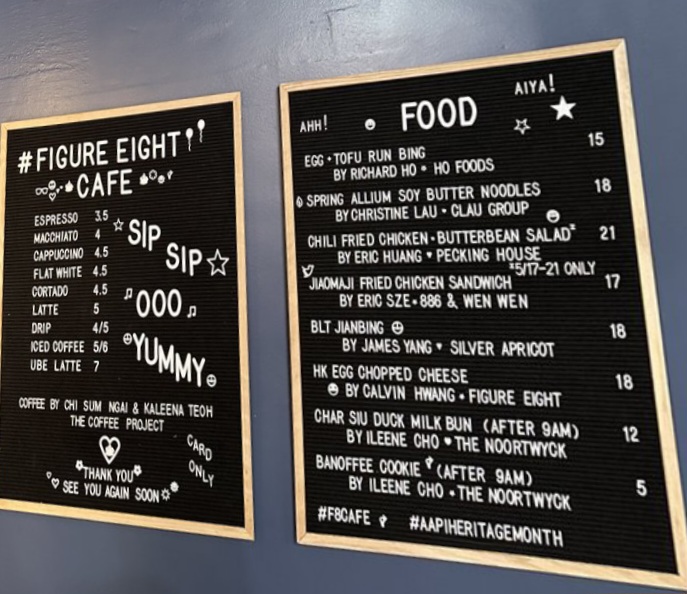 #FIGURE EIGHT
CAFE
ESPRESSO 3.5
MACCHIATO 4
CAPPUCCINO 4.5
FLAT WHITE 4.5
CORTADO 4.5
LATTE 5
DRIP 4/5
ICED COFFEE 5/6
UBE LATTE 7
SIP
SIP
OOO
YUMMY
COFFEE BY CHI SUM NGAI & KALEENA TEOH
THE COFFEE PROJECT
CARD
ONLY
THANK YOU
SEE YOU AGAIN SOON
AHH!
FOOD
AIYA!
EGG • TOFU RUN BING 15
BY RICHARD HO • HO FOODS
SPRING ALLIUM SOY BUTTER NOODLES 18
BY CHRISTINE LAU • CLAU GROUP
CHILI FRIED CHICKEN • BUTTERBEAN SALAD* 21
BY ERIC HUANG ♥ PECKING HOUSE
*5/17-21 ONLY
JIAOMAJI FRIED CHICKEN SANDWICH 17
BY ERIC SZE • 886 & WEN WEN
BLT JIANBING 18
BY JAMES YANG ♥ SILVER APRICOT
HK EGG CHOPPED CHEESE 18
BY CALVIN HWANG • FIGURE EIGHT
CHAR SIU DUCK MILK BUN (AFTER 9AM) 12
BY ILEENE CHO ♥ THE NOORTWYCK
BANOFFEE COOKIE (AFTER 9AM) 5
BY ILEENE CHO • THE NOORTWYCK
#F8CAFE #AAPIHERITAGEMONTH